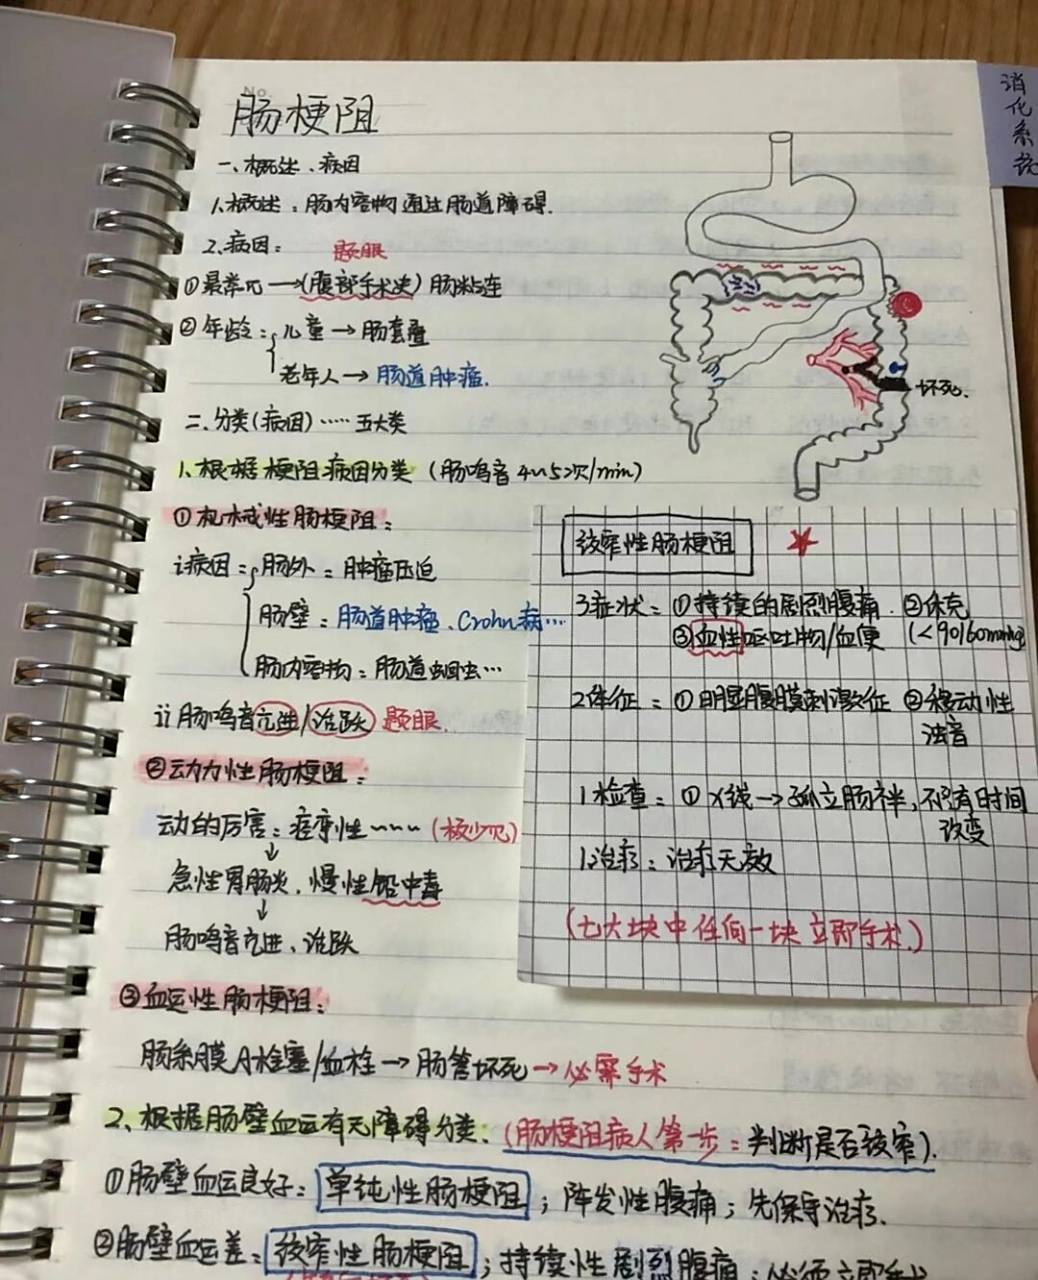 消化系统
No.
肠梗阻
一、概述、病因
1、概述：肠内容物通过肠道障碍.
2、病因：
题眼
①最常见→(腹部手术史)肠粘连
②年龄：儿童→肠套叠
老年人→肠道肿瘤.
坏死.
二、分类(病因)……五大类
1、根据梗阻病因分类 (肠鸣音4~5次/min)
①机械性肠梗阻：
i病因：肠外：肿瘤压迫
肠壁：肠道肿瘤、Crohn病…
肠内容物：肠道蛔虫…
ii肠鸣音亢进/活跃 题眼.
②动力性肠梗阻：
动的厉害：痉挛性~~~(极少见)
↓
急性胃肠炎、慢性铅中毒
↓
肠鸣音亢进、活跃
绞窄性肠梗阻
3症状：①持续的剧烈腹痛.②休克
③血性呕吐物/血便 (<90/60mmHg
2体征：①明显腹膜刺激征 ②移动性
浊音
1检查：①X线→孤立肠袢,不随时间
改变
1治疗：治疗无效
(七大块中任何一块立即手术.)
③血运性肠梗阻：
肠系膜A栓塞/血栓→肠管坏死→必需手术
2、根据肠壁血运有无障碍分类.(肠梗阻病人第一步：判断是否绞窄).
①肠壁血运良好：单纯性肠梗阻；阵发性腹痛；先保守治疗.
②肠壁血运差：绞窄性肠梗阻；持续性剧烈腹痛；必须立即手术